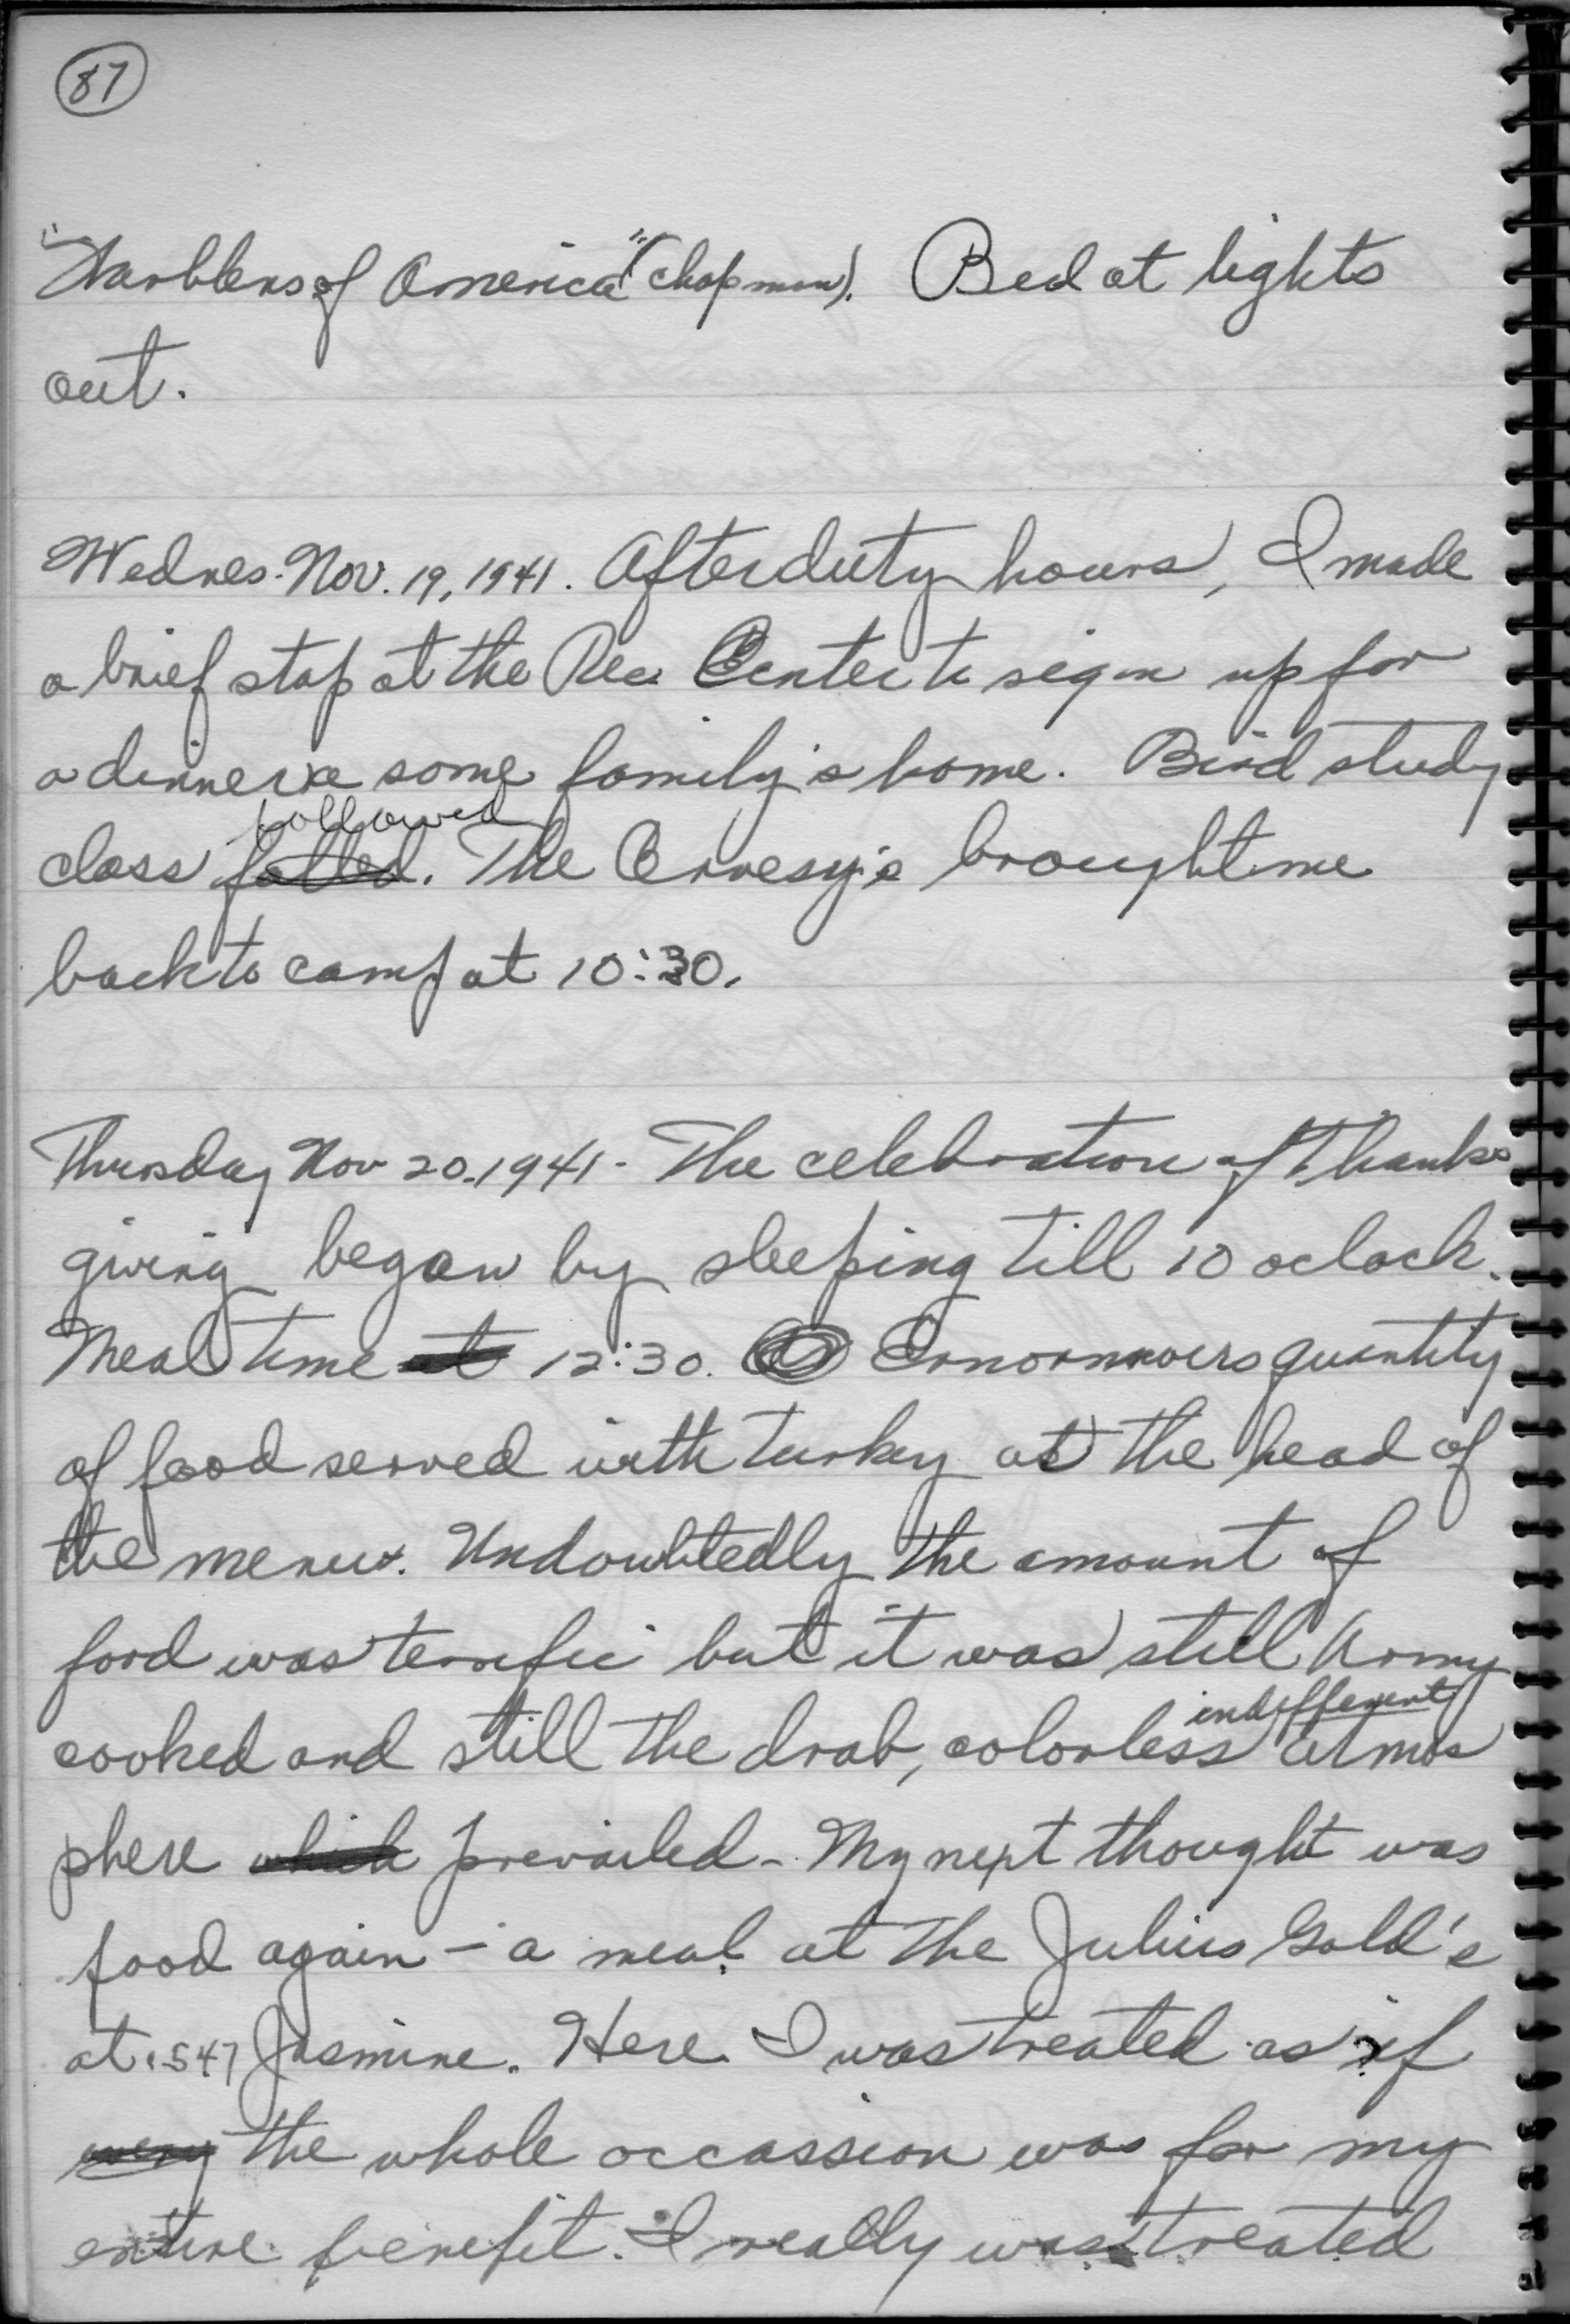 87
"Warblers of America" (Chapman). Bed at lights
out.
Wednes. Nov. 19, 1941. After duty hours, I made
a brief stop at the Rec. Center to sign up for
a dinner some family's home. Bird study
followed
class . The brought me
back to camp at 10:30.
Thursday Nov 20. 1941 - The celebration of Thanks
giving began by sleeping till 10 oclock.
Meal time at 12:30. quantity
of food served with turkey at the head of
the menu. Undoubtedly the amount of
food was terrific but it was still Army
indifferent
cooked and still the drab, colorless atmos
phere which prevailed - My next thought was
food again - a meal at the Julius Gold's
at 547 Jasmine. Here I was treated as if
the whole occassion was for my
entire benefit. I really was treated